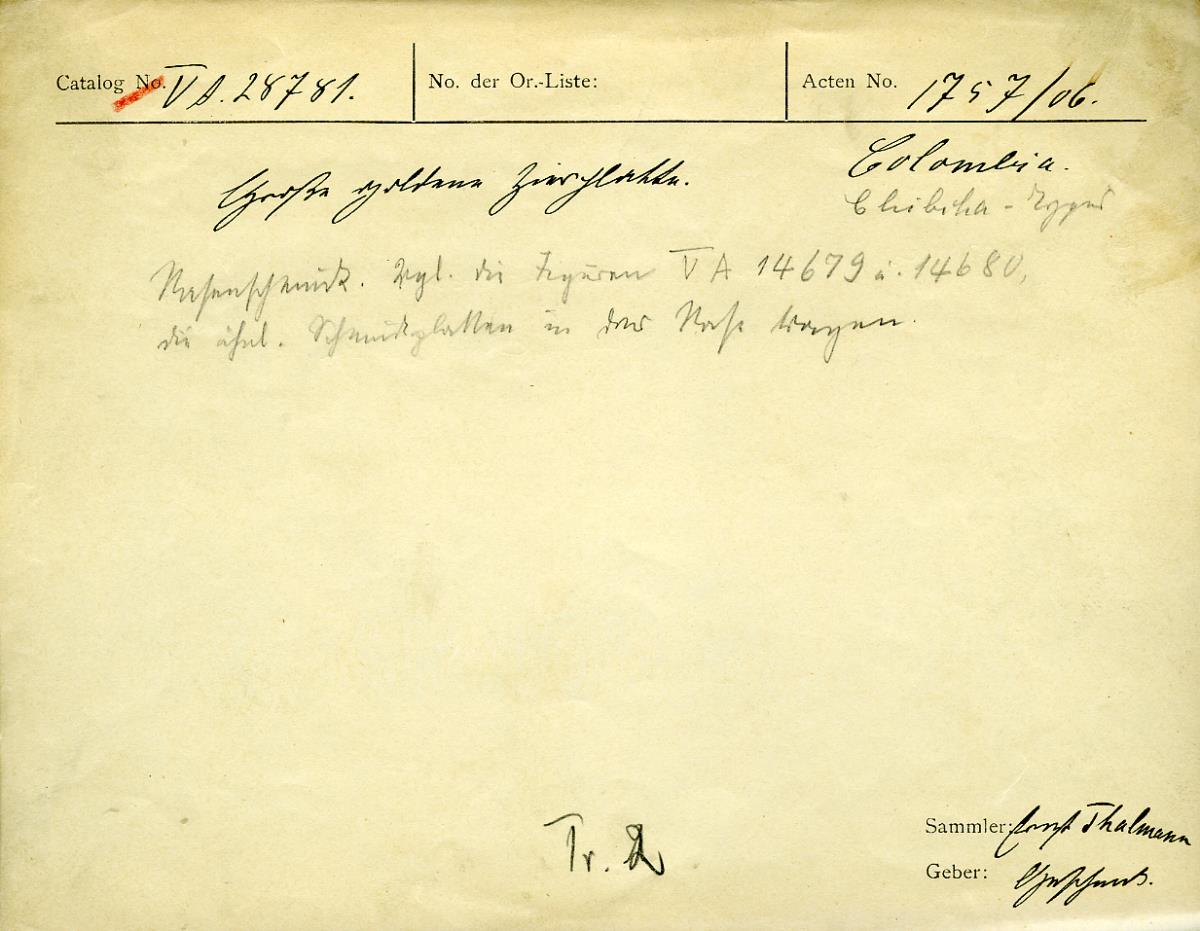 Catalog No. V A. 28781.
No. der Or.-Liste:
Acten No. 1757/06.
Große goldene Zierplatte.
Colombia.
Chibcha-Typus
Nasenschmuck. Vgl. die Figuren V A 14679 u. 14680,
die ähnl. Schmuckplatten in der Nase tragen.
Tr. 2
Sammler: Ernst Thalmann
Geber: Geschenk.